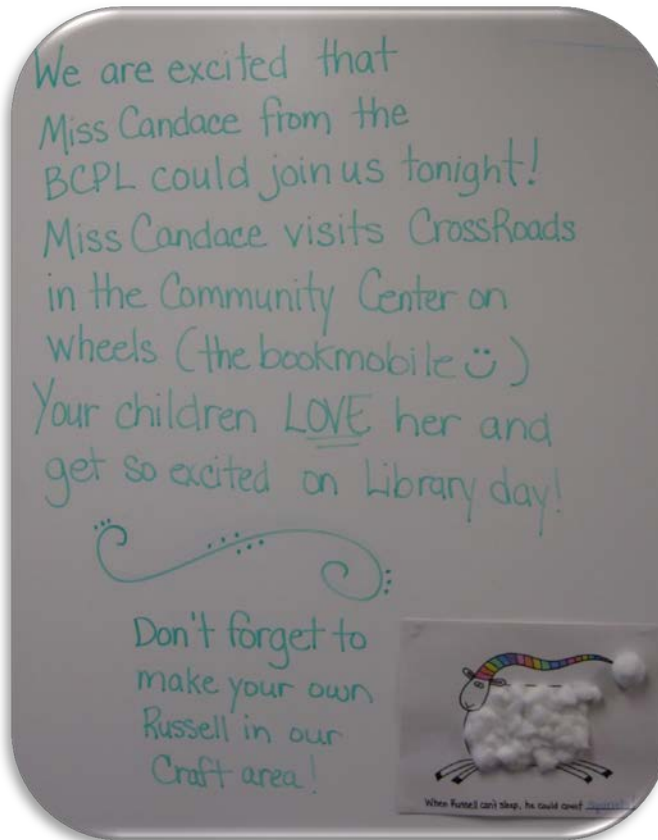 We are excited that
Miss Candace from the
BCPL could join us tonight!
Miss Candace visits CrossRoads
in the Community Center on
wheels (the bookmobile ü)
Your children LOVE her and
get so excited on Library day!
Don't forget to
make your own
Russell in our
Craft area!
When Russell can't sleep, he could count